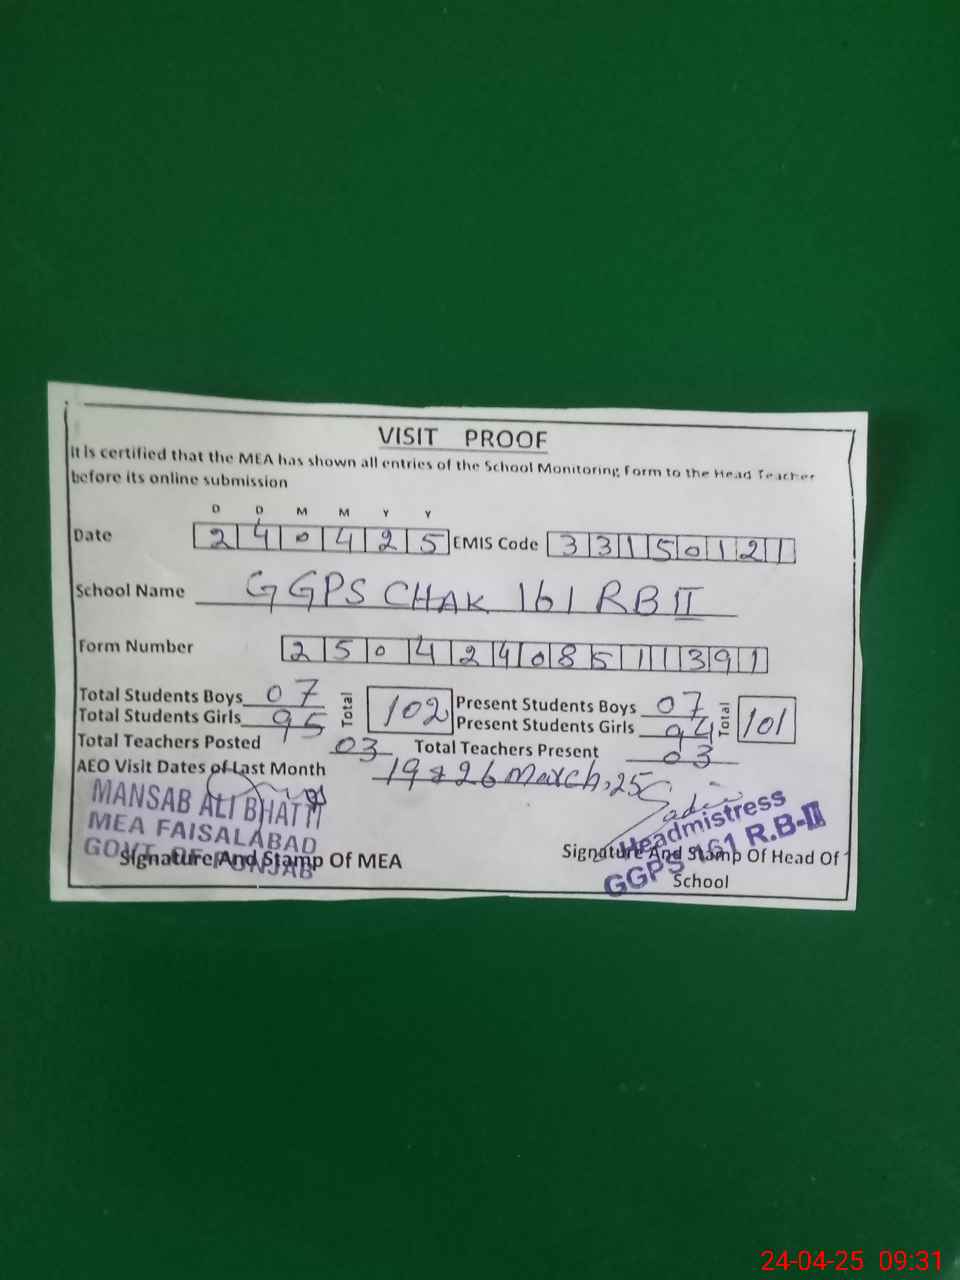 VISIT PROOF
It Is certified that the MEA has shown all entries of the School Monitoring Form to the Head Teacher
before its online submission
D D M M Y Y
Date 240425 EMIS Code 33150121
School Name GGPS CHAK 161 RB II
Form Number 25042408511391
Total Students Boys 07 Total 102 Present Students Boys 07 Total 101
Total Students Girls 95 Present Students Girls 94
Total Teachers Posted 03 Total Teachers Present 03
AEO Visit Dates of Last Month 19 & 26 March, 25
MANSAB ALI BHATTI
MEA FAISALABAD
GOVT. OF PUNJAB
Signature And Stamp Of MEA
Headmistress
GGPS 161 R.B-II
Signature And Stamp Of Head Of
School
24-04-25 09:31